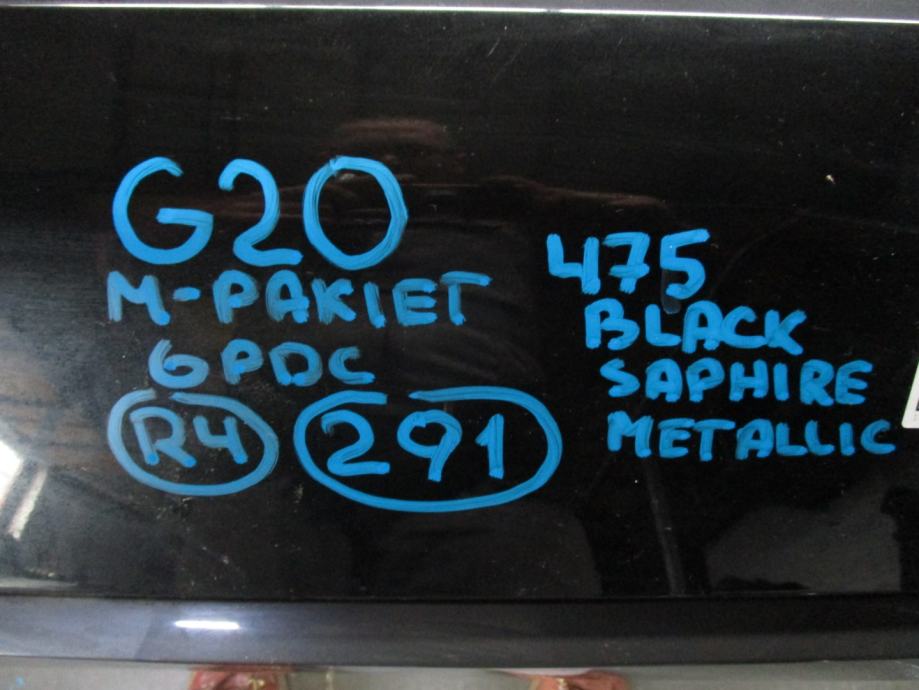 G20
M-PAKIET
6PDC
R4 291
475
BLACK
SAPHIRE
METALLIC